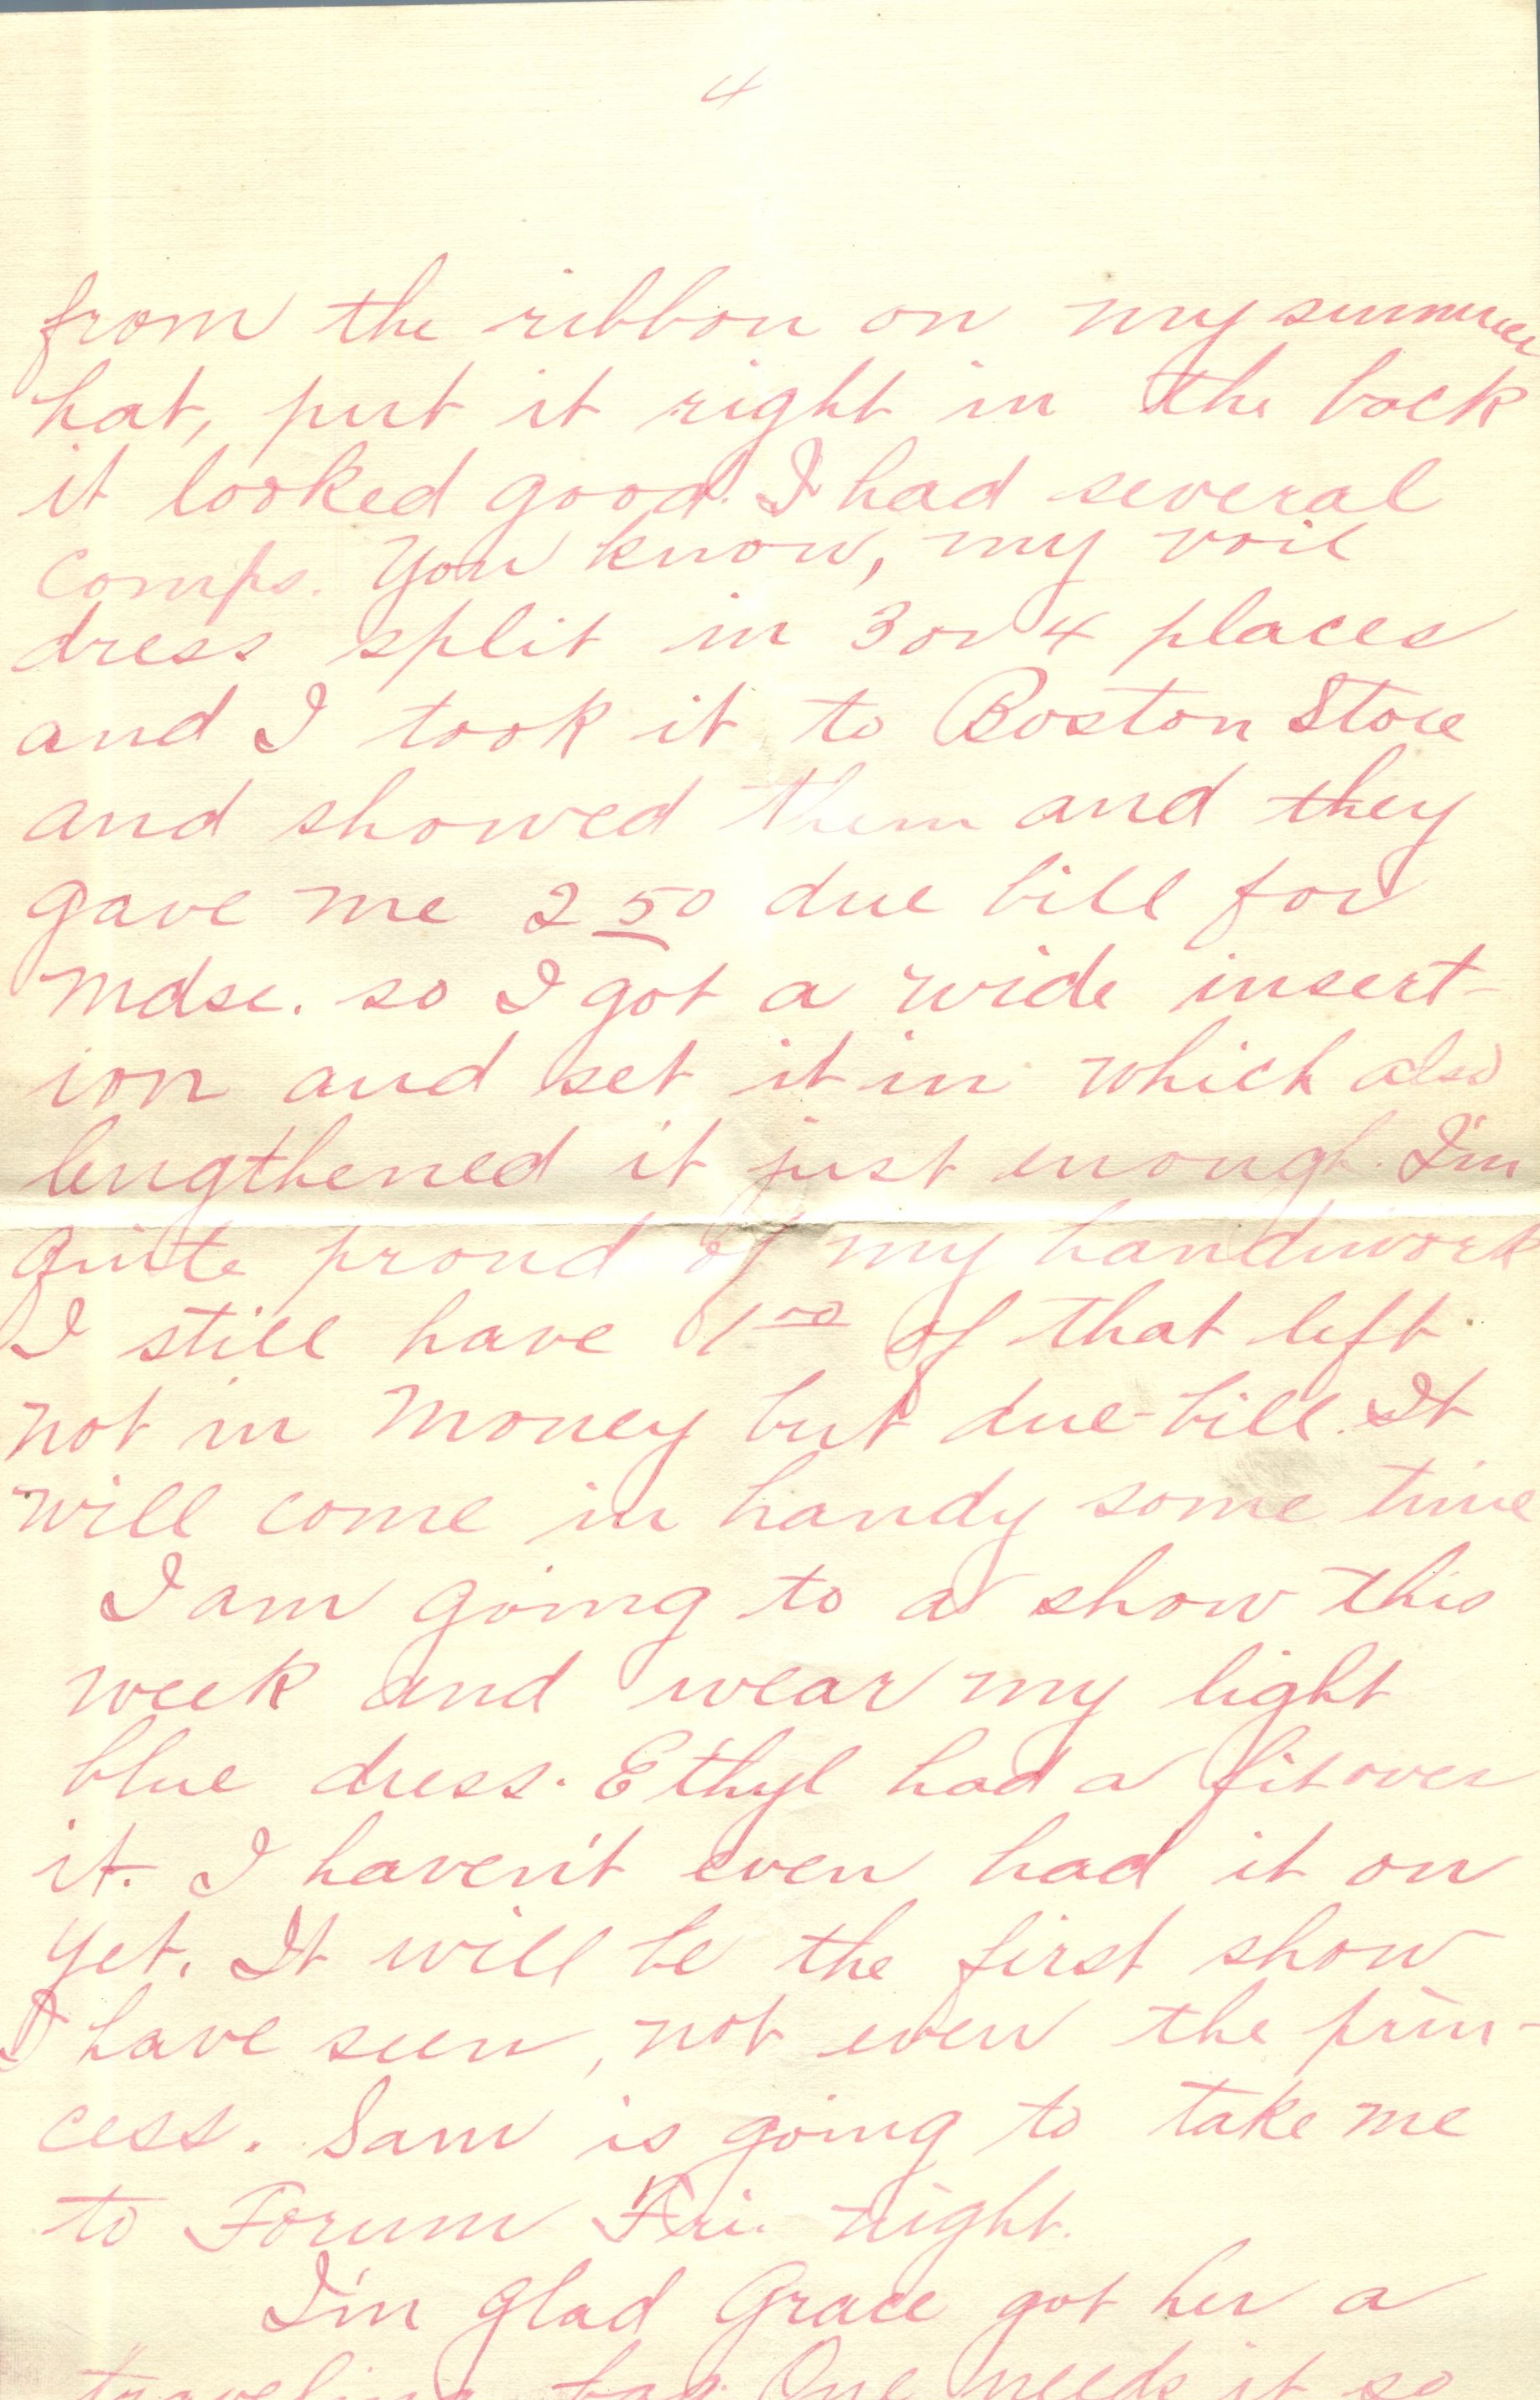 4
from the ribbon on my summer
hat, put it right in the back
it looked good. I had several
comps. You know, my voil
dress split in 3 or 4 places
and I took it to Boston Store
and showed them and they
gave me 2 50 due bill for
mdse. so I got a wide insert-
ion and set it in which also
lengthened it just enough. I'm
quite proud of my handiwork
I still have 1 00 of that left
not in money but due-bill. It
will come in handy some time
I am going to a show this
week and wear my light
blue dress. Ethyl had a fit over
it. I haven't even had it on
yet. It will be the first show
I have seen, not even the prin-
cess. Sam is going to take me
to Forum Fri. night.
I'm glad Grace got her a
traveling bag. One needs it so